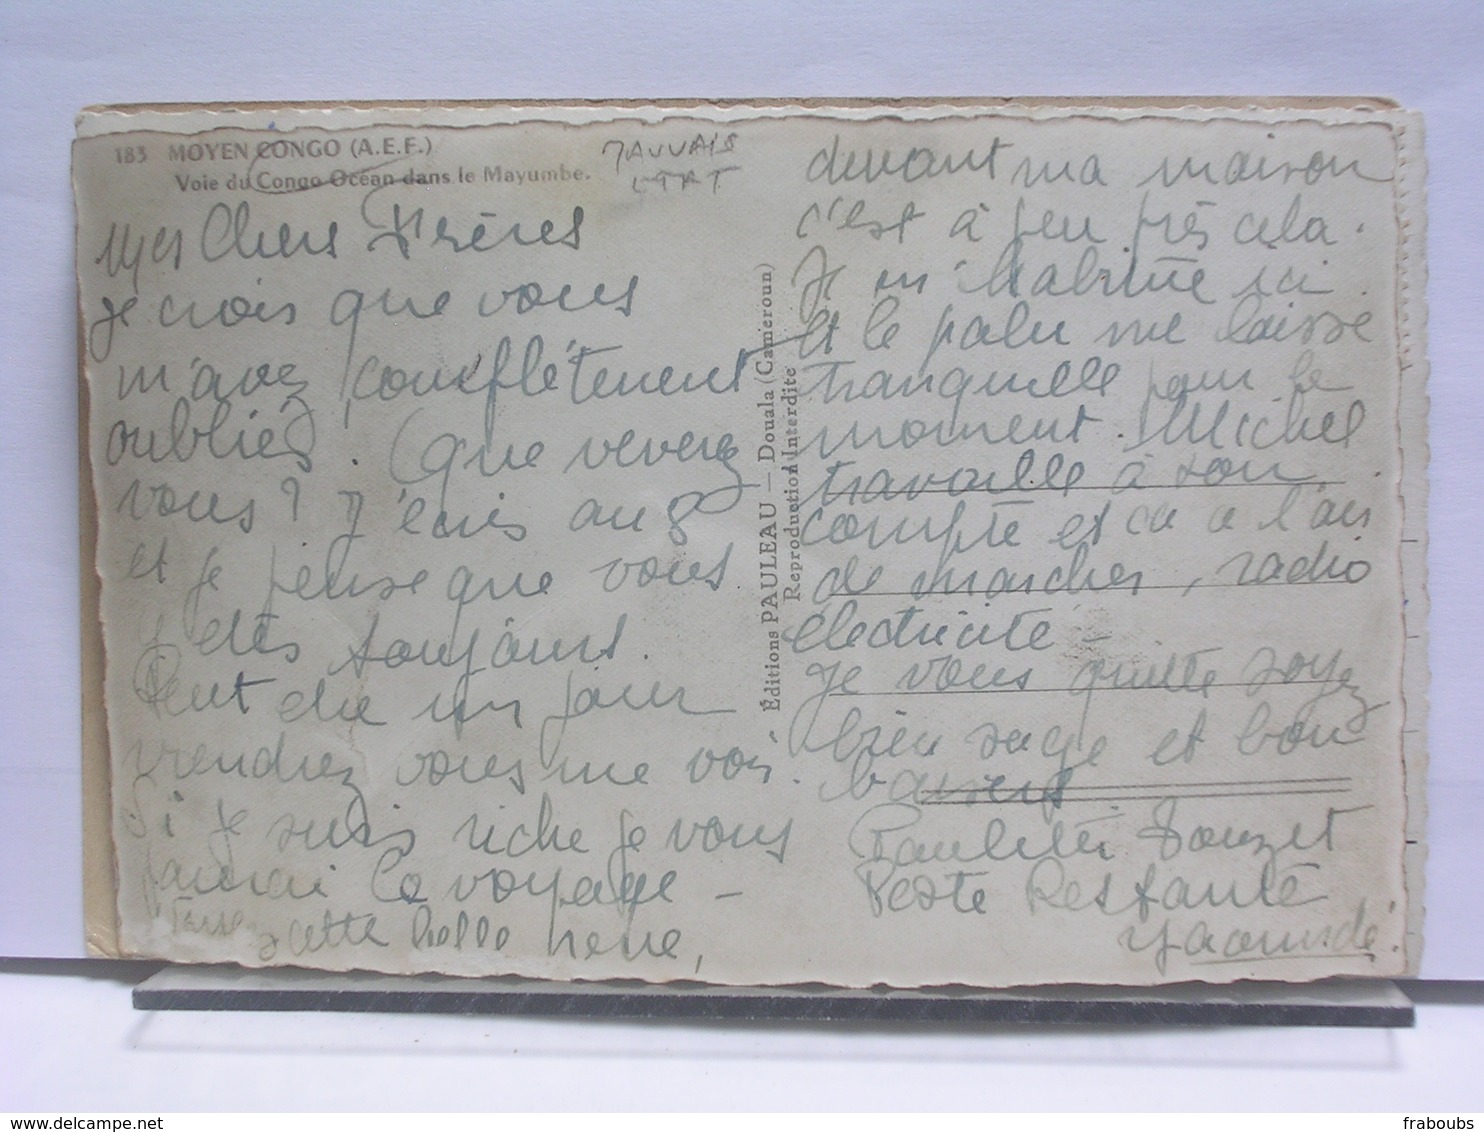 183 MOYEN CONGO (A.E.F.)
Voie du Congo Océan dans le Mayumbe.
MAUVAIS
ETAT
Mes Chers Frères
je crois que vous
m'avez complètement
oubliés. Que devenez
vous? J'écris au 8
et je pense que vous
y êtes toujours.
Peut être un jour
viendrez vous me voir.
Si je suis riche je vous
paierai le voyage -
cette belle
devant ma maison
c'est à peu près cela.
Je m'habitue ici
et le palu me laisse
tranquille pour le
moment. Michel
travaille à son
compte et ça a l'air
de marcher, radio
électricité -
Je vous quitte soyez
bien sage et bon
baisers
Paulette Douzet
Poste Restante
Yaoundé.
Éditions PAULEAU — Douala (Cameroun)
Reproduction Interdite
fraboubs